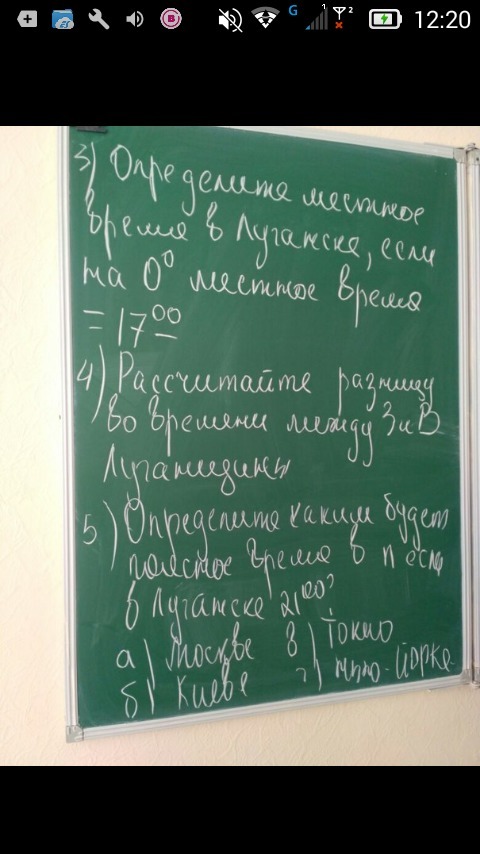 G 1 2 12:20
3) Определите местное
время в Луганске, если
на 0° местное время
= 17⁰⁰
4) Рассчитайте разницу
во времени между З и В
Луганщины
5) Определите каким будет
поясное время в п если
в Луганске 21⁰⁰?
а) Москве в) Токио
б) Киеве г) Нью-Йорке